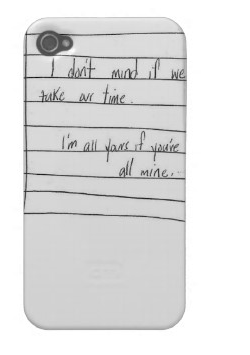 I don't mind if we
take our time.
I'm all yours if you're
all mine.